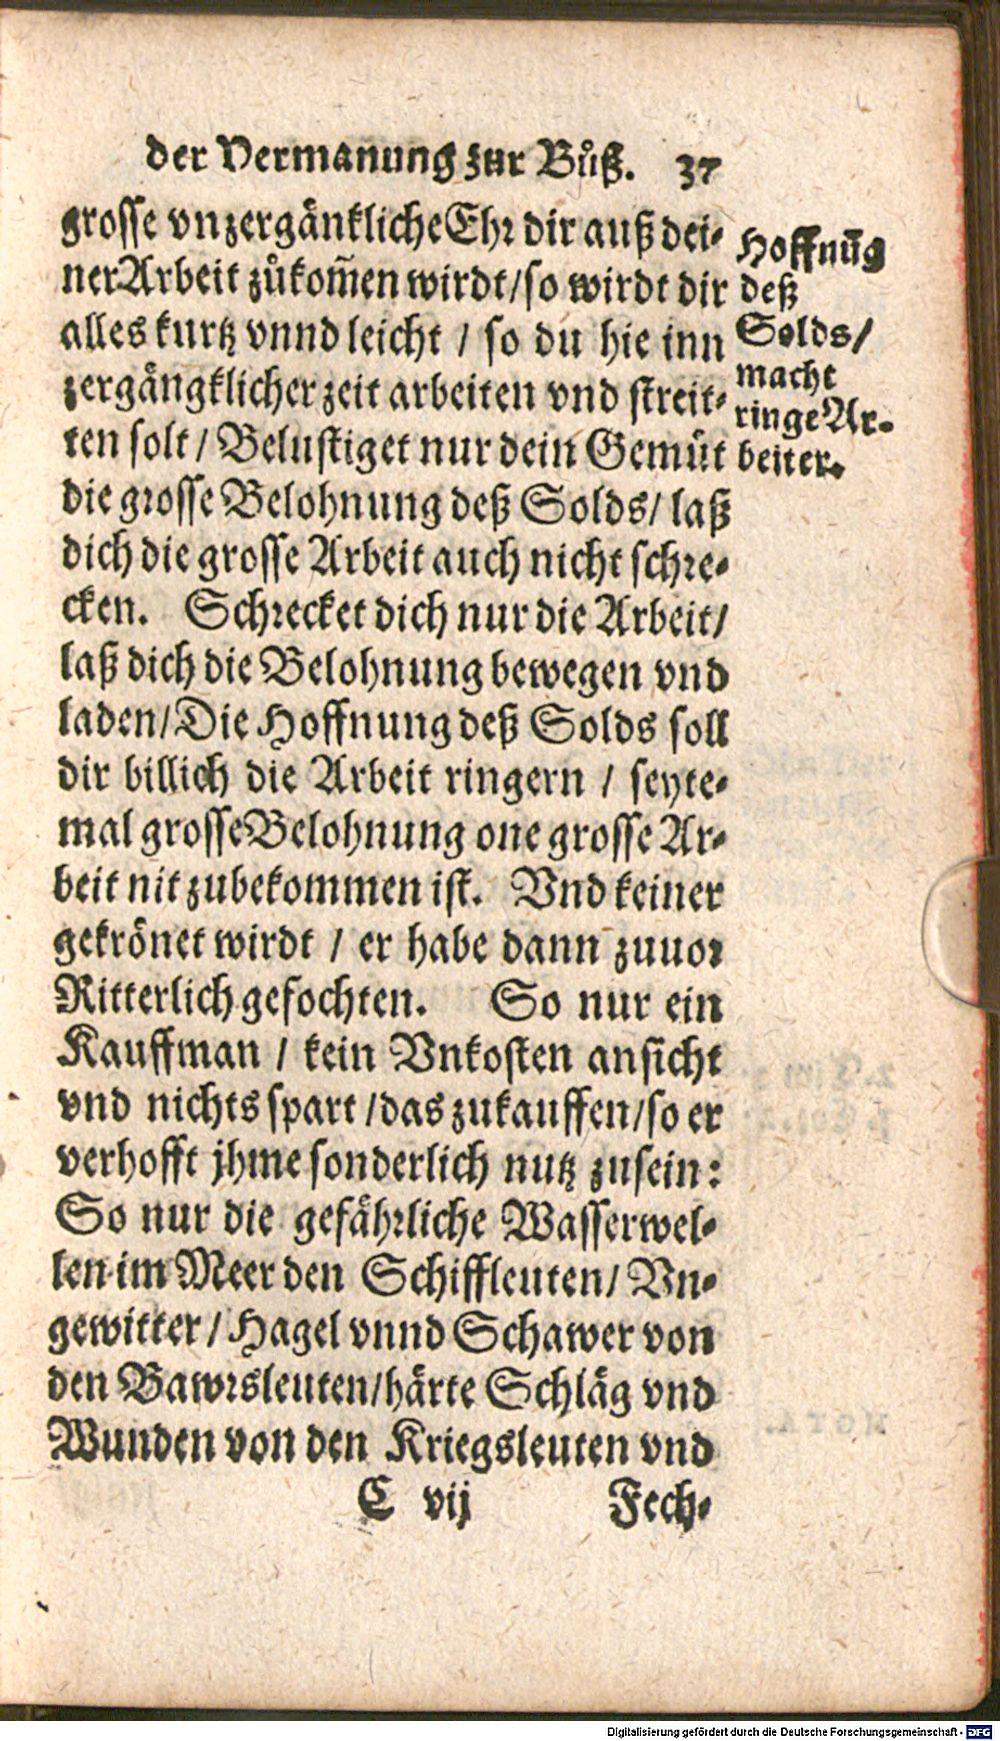 der Vermanung zur Bůß. 37
grosse vnzergänkliche Ehr dir auß dei-
ner Arbeit zůkom̄en wirdt/so wirdt dir
alles kurtz vnnd leicht / so du hie inn
zergängklicher zeit arbeiten vnd streit-
ten solt / Belustiget nur dein Gemüt
die grosse Belohnung deß Solds/ laß
dich die grosse Arbeit auch nicht schre-
cken. Schrecket dich nur die Arbeit/
laß dich die Belohnung bewegen vnd
laden/Die Hoffnung deß Solds soll
dir billich die Arbeit ringern / seyte-
mal grosse Belohnung one grosse Ar-
beit nit zubekommen ist. Vnd keiner
gekrönet wirdt / er habe dann zuuor
Ritterlich gefochten. So nur ein
Kauffman / kein Vnkosten ansicht
vnd nichts spart /das zukauffen/so er
verhofft jhme sonderlich nutz zusein:
So nur die gefährliche Wasserwel-
len im Meer den Schiffleuten/ Vn-
gewitter / Hagel vnnd Schawer von
den Bawrsleuten/härte Schläg vnd
Wunden von den Kriegsleuten vnd
C vij Fech-
Hoffnūg
deß
Solds/
macht
ringe Ar-
beiter.
Digitalisierung gefördert durch die Deutsche Forschungsgemeinschaft - DFG